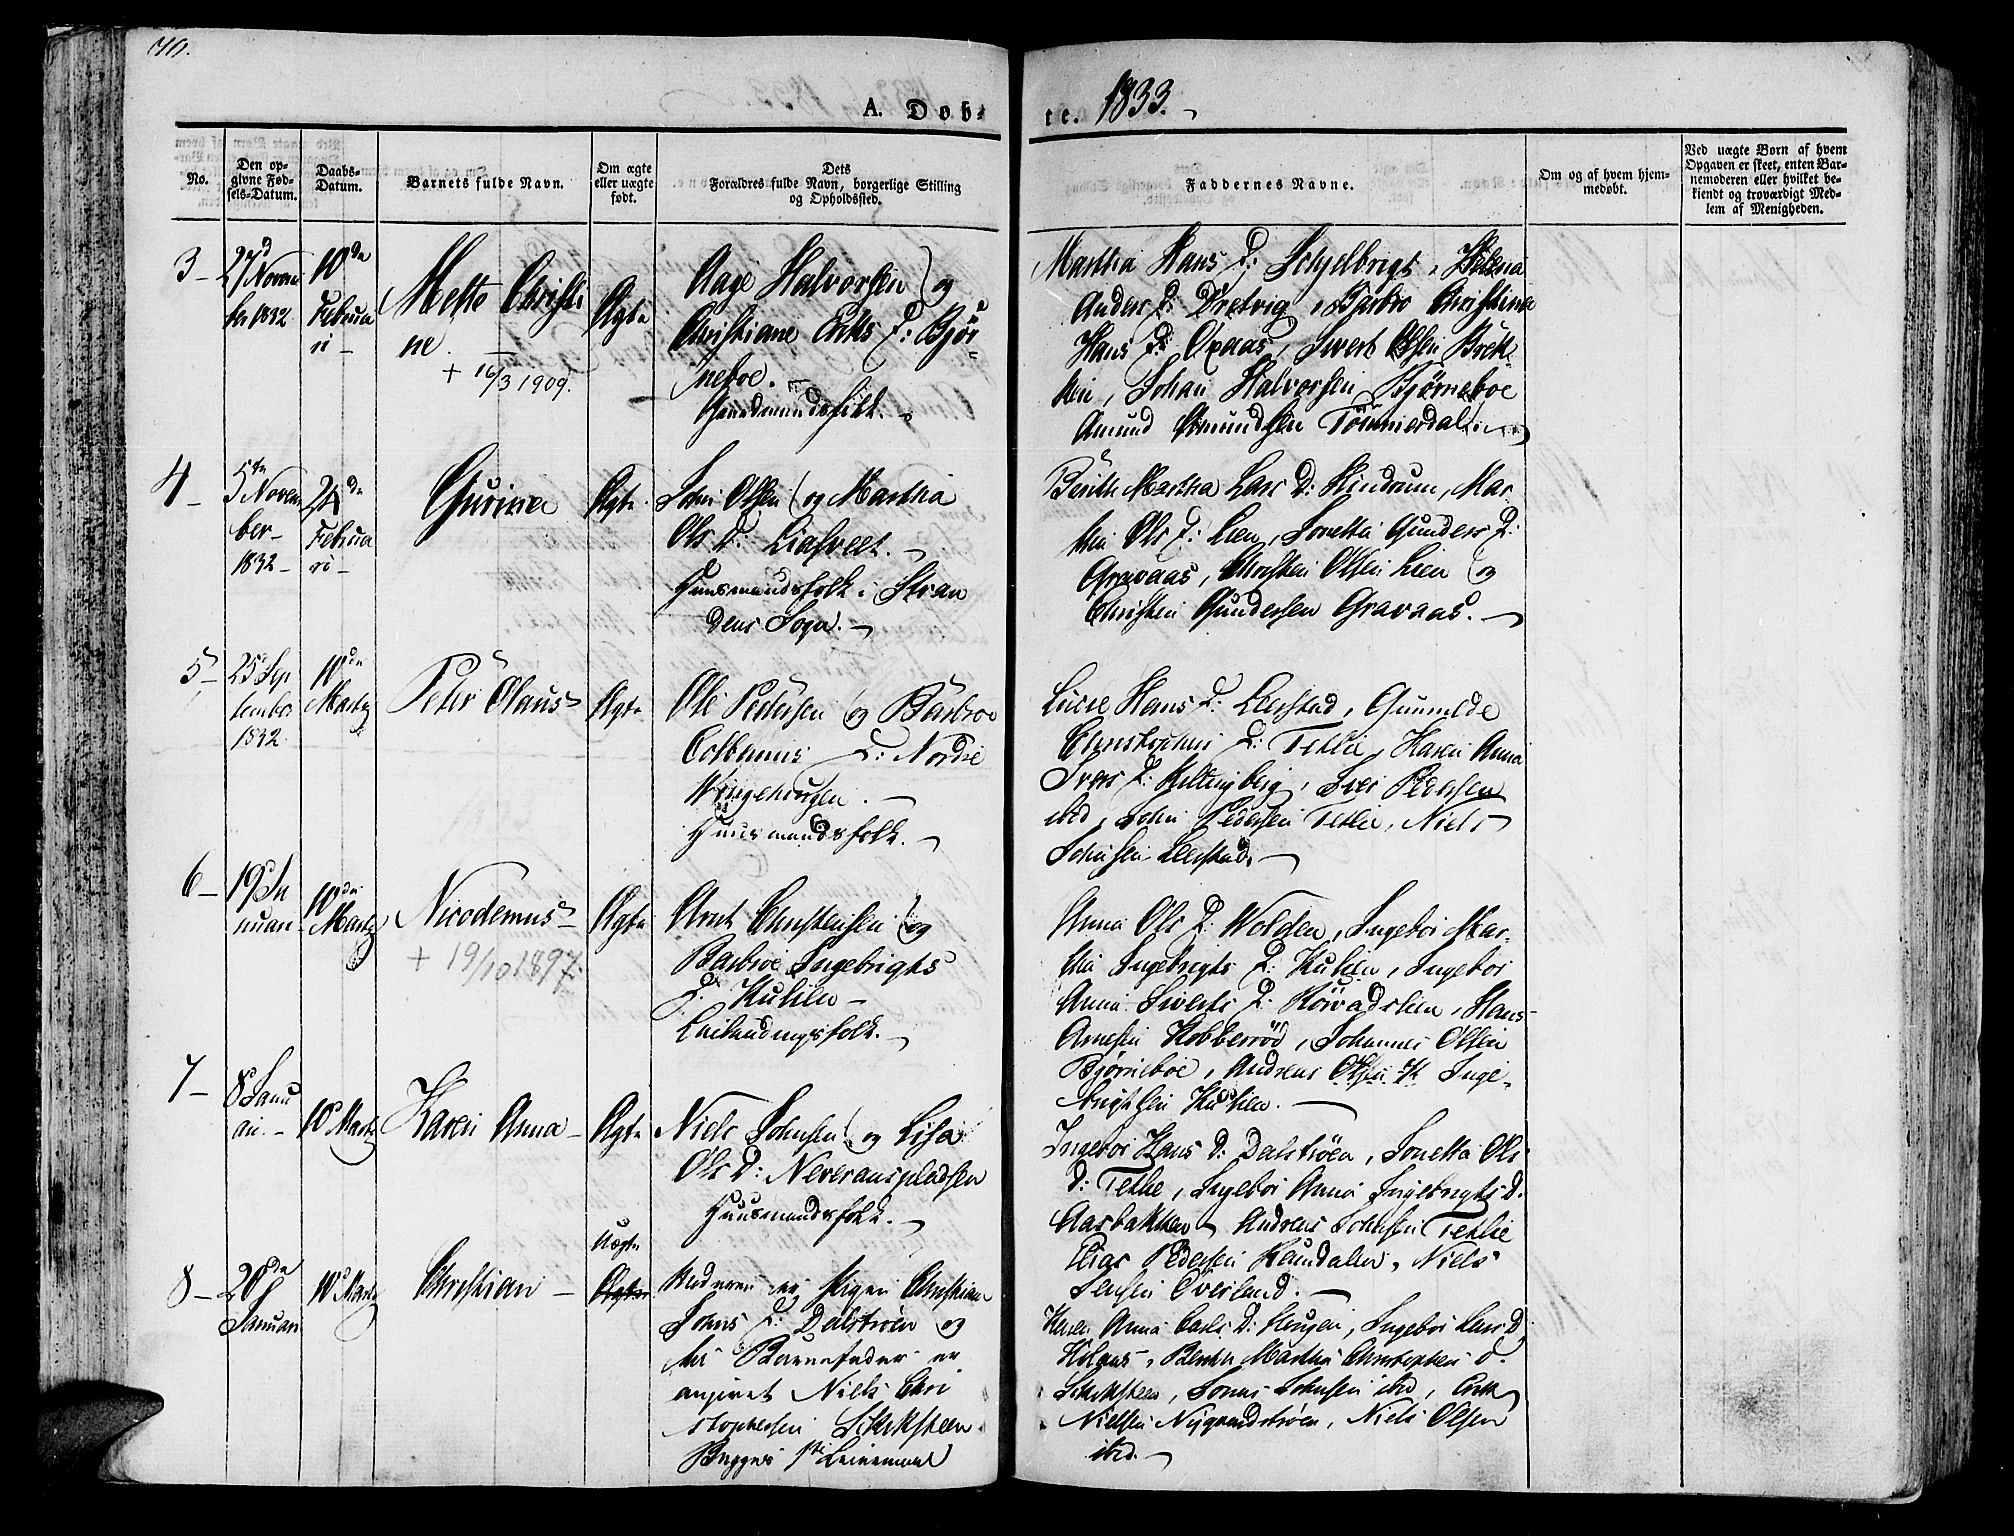 A. Døb-
te. 1833.
No.
Den op-
givne Fød-
sels-Datum.
Daabs-
Datum.
Barnets fulde Navn.
Om ægte
eller uægte
født.
Dets
Forældres fulde Navn, borgerlige Stilling
og Opholdssted.
Faddernes Navne.
Om og af hvem hjem-
medøbt.
Ved uægte Born af hvem
Opgaven er skeet, enten Bar-
nemoderen eller hvilket be-
kiendt og troværdigt Med-
lem af Menigheden.
3 -
27d
Novem
ber 1832
10de
Februa
ri -
Mette Christi
ne. -
+ 16/3 1909.
Ægte
Aage Halvorsen og
Christiane Eriks D: Bjør-
neboe.
Gaardmandsfolk. -
Martha Hans D:
Anders D: Dretvig, Barbro Christina
Hans D: Oxaas, Sivert Olsen
Johan Halvorsen Bjørneboe
Amund Amundsen Tømmerdal
4 -
5te
Novem
ber -
1832 -
24de
Februa
ri -
Gurina
Ægte
John Olsen og Martha
Ols D: Liasveet. -
Huusmandsfolk i Stran
dens Sogn. -
Berith Martha Lars D: Hindrum, Mar
tha Ols D: Lien, Jonetta Gunders D:
Gravaas, Christen Olsen Lien og
Christen Gundersen Gravaas. -
5 -
25 Sep
tember
1832.
10de
Martz
Peter Olaus
Ægte
Ole Pedersen og Barbroe
Colbenus D: Nordre
Wingehougen. -
Huusmandsfolk. -
Lucie Hans D: Leerstad, Gunnilde
Christophers D: Tetlie, Karen Anna
Ivers D: Hellingberg, Iver Pedersen
ibd, John Pedersen Tetlie, Niels
Johnsen Leerstad. -
6 -
19 Ja
nuari
10de
Martz
Nicodemus -
+ 19/10 1897.
Ægte
Arnt Christensen og
Barbroe Ingebrigts
D: Kulien -
Leilændingsfolk. -
Anna Ols D: Wolden, Ingebor Mar-
tha Ingebrigts D: Kulien, Ingebor
Anna Siverts D: Rørvadslien, Hans
Arnesen Kobberrød, Johannes Olsen
Bjørneboe, Andreas Inge-
brigtsen Kulien. -
7 -
8 Janu
ari. -
10 Martz
Karen Anna -
Ægte
Niels Johnsen og Lisa
Ols D: Neveraaspladsen
Huusmandsfolk. -
Ingebor Hans D: Dalstrøen, Jonetta Ols
D: Tetlie, Ingebor Anna Ingebrigts D.
Aasbakken, Andreas Johnsen Tetlie
Elias Pedersen Ramdalen, Niels
Jensen Overland. -
8 -
20de
Januari
10 Martz
Christian -
Uægte
Ægte
Moderen er Pigen Christian
Johns D: Dalstrøen og
til Barnefader er
angivet Niels Chri
stophersen
Begges 1ste Leiermaal
Karen Anna Carls D: Haugen, Ingebor Lars D
Berith Martha Christophers D.
Jonas Johnsen ibd, Erik
Nielsen Nygaardstrøen, Niels Olsen
ibd. -